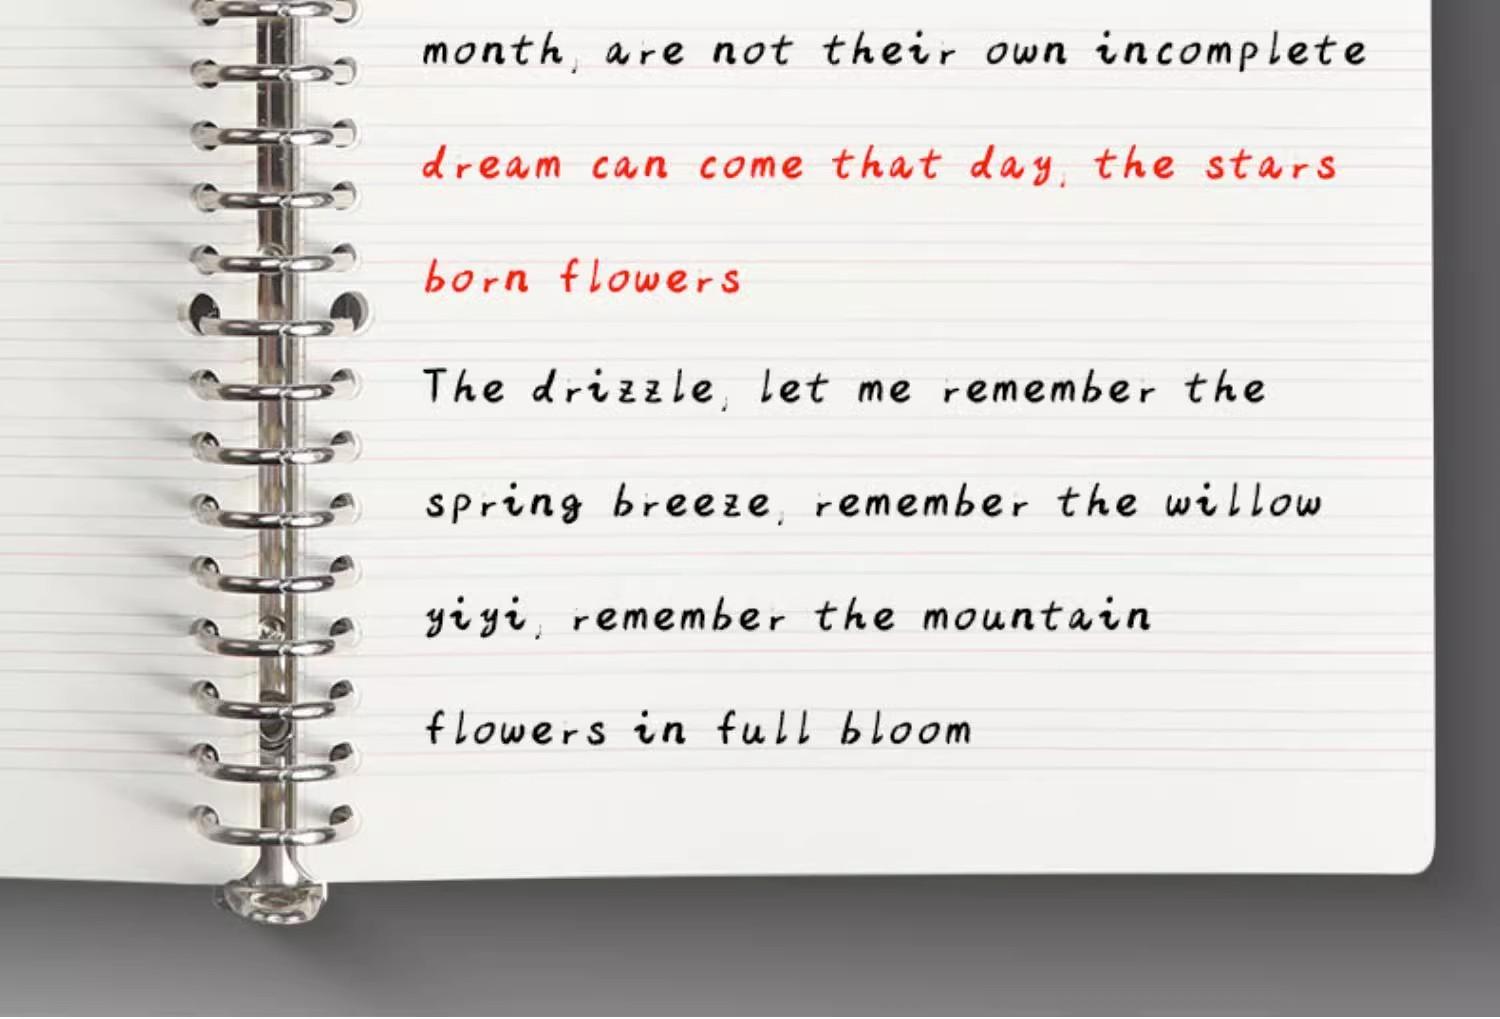 month, are not their own incomplete
dream can come that day, the stars
born flowers
The drizzle, let me remember the
spring breeze, remember the willow
yiyi, remember the mountain
flowers in full bloom